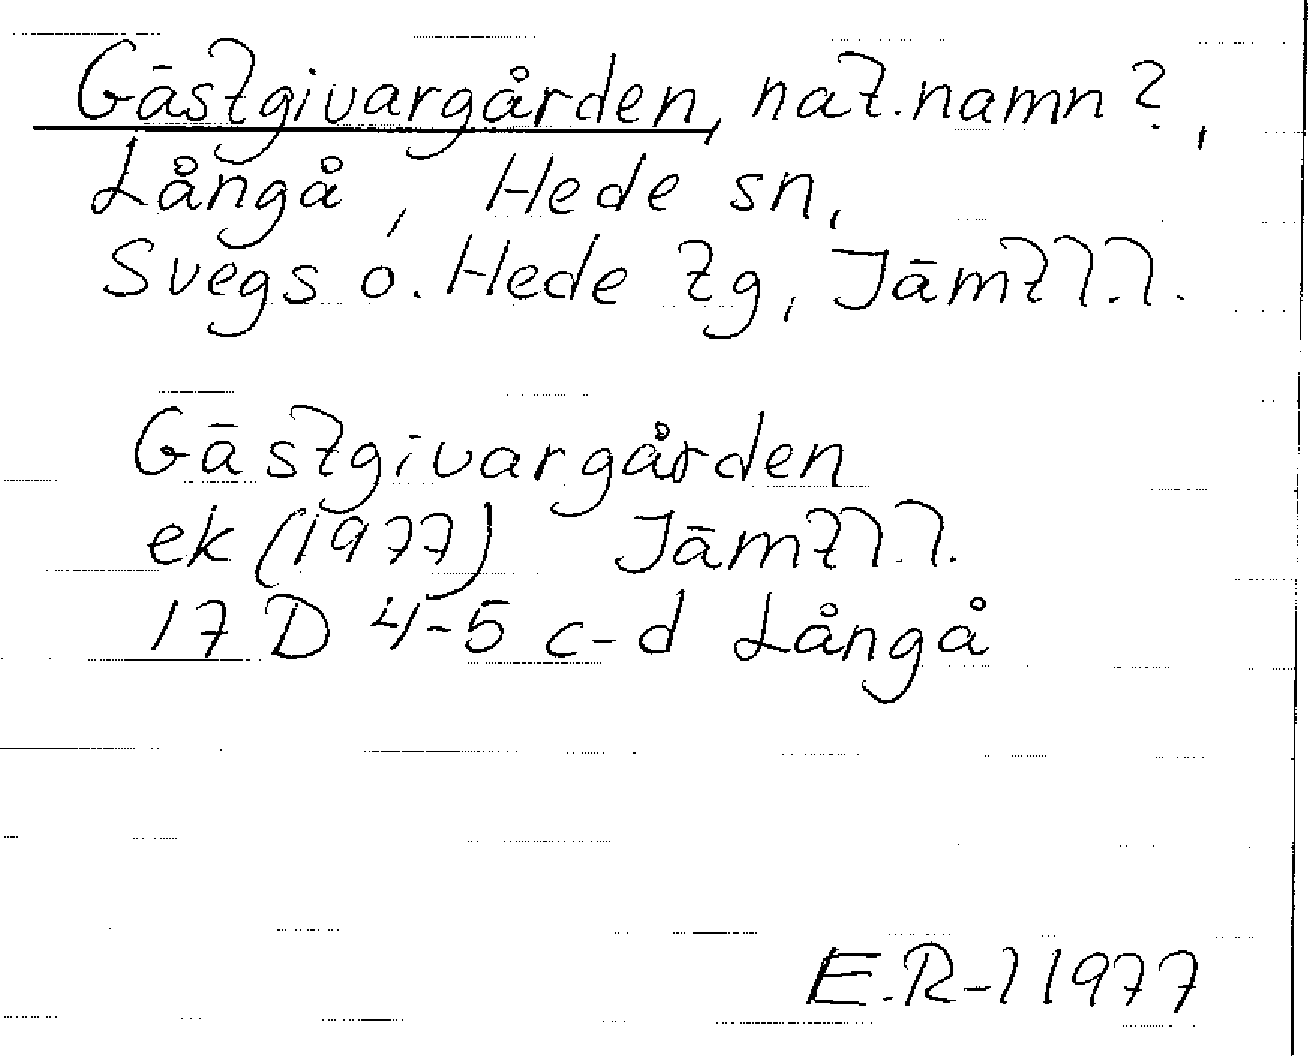 Gästgivargården, nat.namn?,
Långå, Hede sn,
Svegs o. Hede tg, Jämtl.l.
Gästgivargården
ek (1977) Jämtl.l.
17 D 4-5 c-d Långå
E.R-l 1977